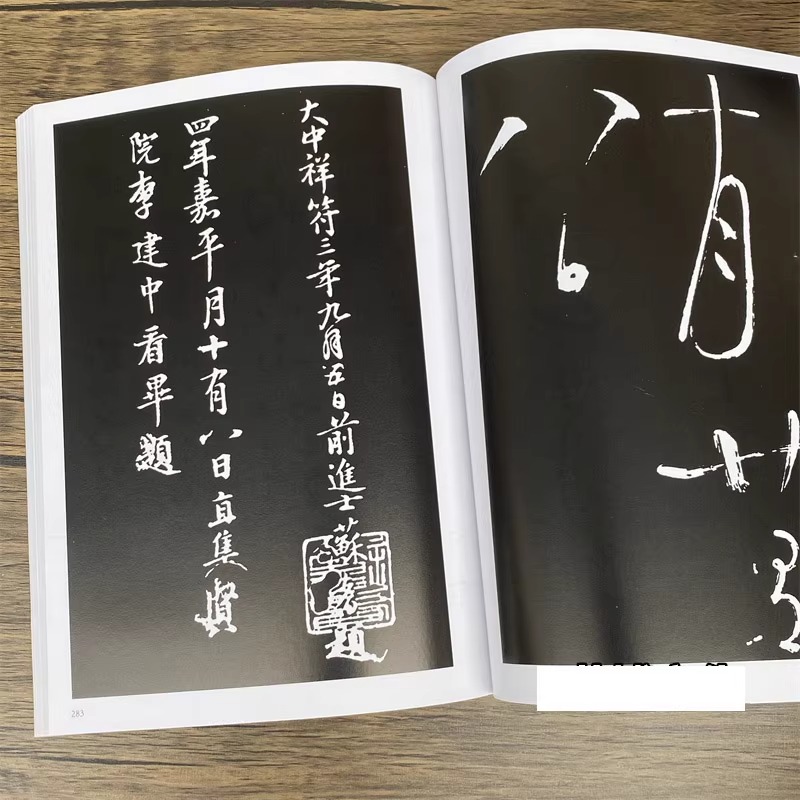 大中祥符三年九月五日前進士蘇耆題
四年嘉平月十有八日直集賢
院李建中看畢題
283
有